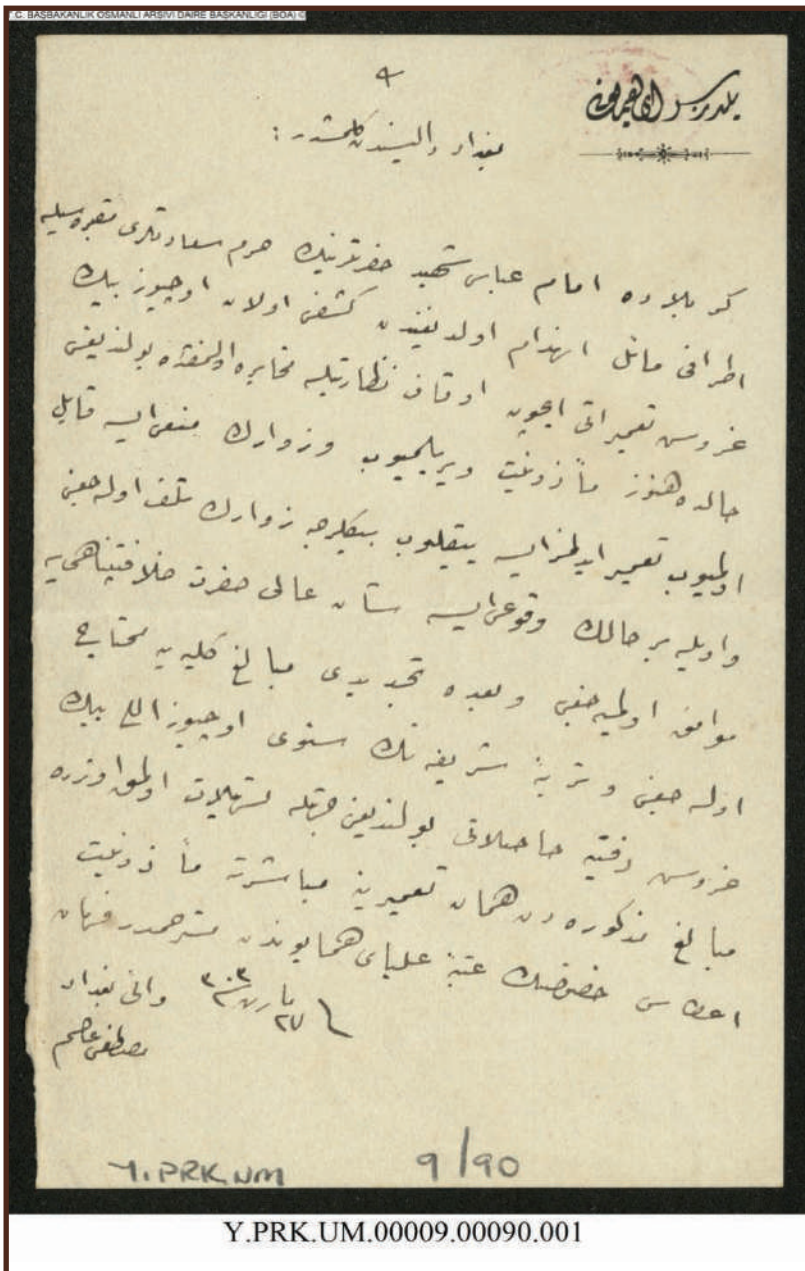 T.C. BAŞBAKANLIK OSMANLI ARŞİVİ DAİRE BAŞKANLIĞI (BOA) ©
يلديز سراى همايونى
بغداد واليسندن كلمشدر :
كربلاده امام عباس شهيد حضرتلرينك حرم سعادتلرى مقبره سيله
اطرافى مائل انهدام اولديغندن كشفى اولان اوچيوز بيك
غروش تعميراتى ايچون اوقاف نظارتيله مخابره اولنمقده بولنديغى
حالده هنوز مأذونيت ويريلميوب وزوارك منعى ايسه قابل
اولميوب تعمير ايدلمز ايسه ييقيلوب بيكلرجه زوارك تلف اوله جغى
واويله بر حالك وقوعى ايسه شان عالى حضرت خلافتپناهى يه
موافق اولميه جغى وبعده تجديدى مبالغ كليه يه محتاج
اوله جغى وتربه شريفه نك سنوى اوچيوز اللى بيك
غروش دفنيه حاصلاتى بولنديغى جهتله تسهيلات اولمق اوزره
مبالغ مذكوره دن همان تعميرينه مباشرته مأذونيت
اعطاسى خصوصنك عتبه علياى همايوندن مسترحمدر فرمان
٢٧ مارت سنه ٣٠٣ والئ بغداد
مصطفى عاصم
Y.PRK.UM 9/90
Y.PRK.UM.00009.00090.001